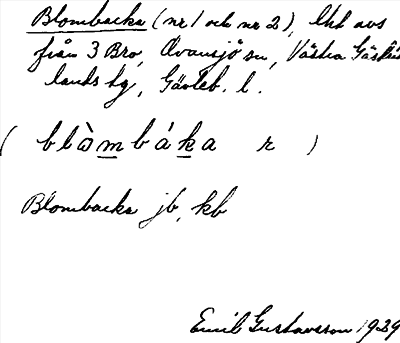 Blombacka (nr 1 och nr 2), lht avs
från 3 Bro, Ovansjö sn, Västra Gästrik
lands tg, Gävleb. l.
( blòmbáka r )
Blombacka jb, kb
Emil Gustavsson 1929